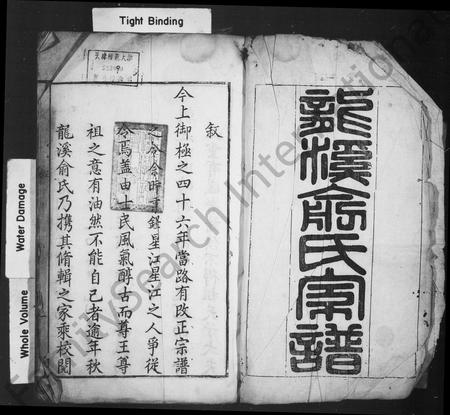 Tight Binding
Water Damage
Whole Volume
龍溪俞氏宗譜
敘
今上御極之四十六年當路有改正宗譜
之令時
星江星江之人爭從
令焉蓋由士民風氣醇古而尊王尊
祖之意有油然不能自己者逾年秋
龍溪俞氏乃携其脩輯之家乘校閱
FamilySearch International